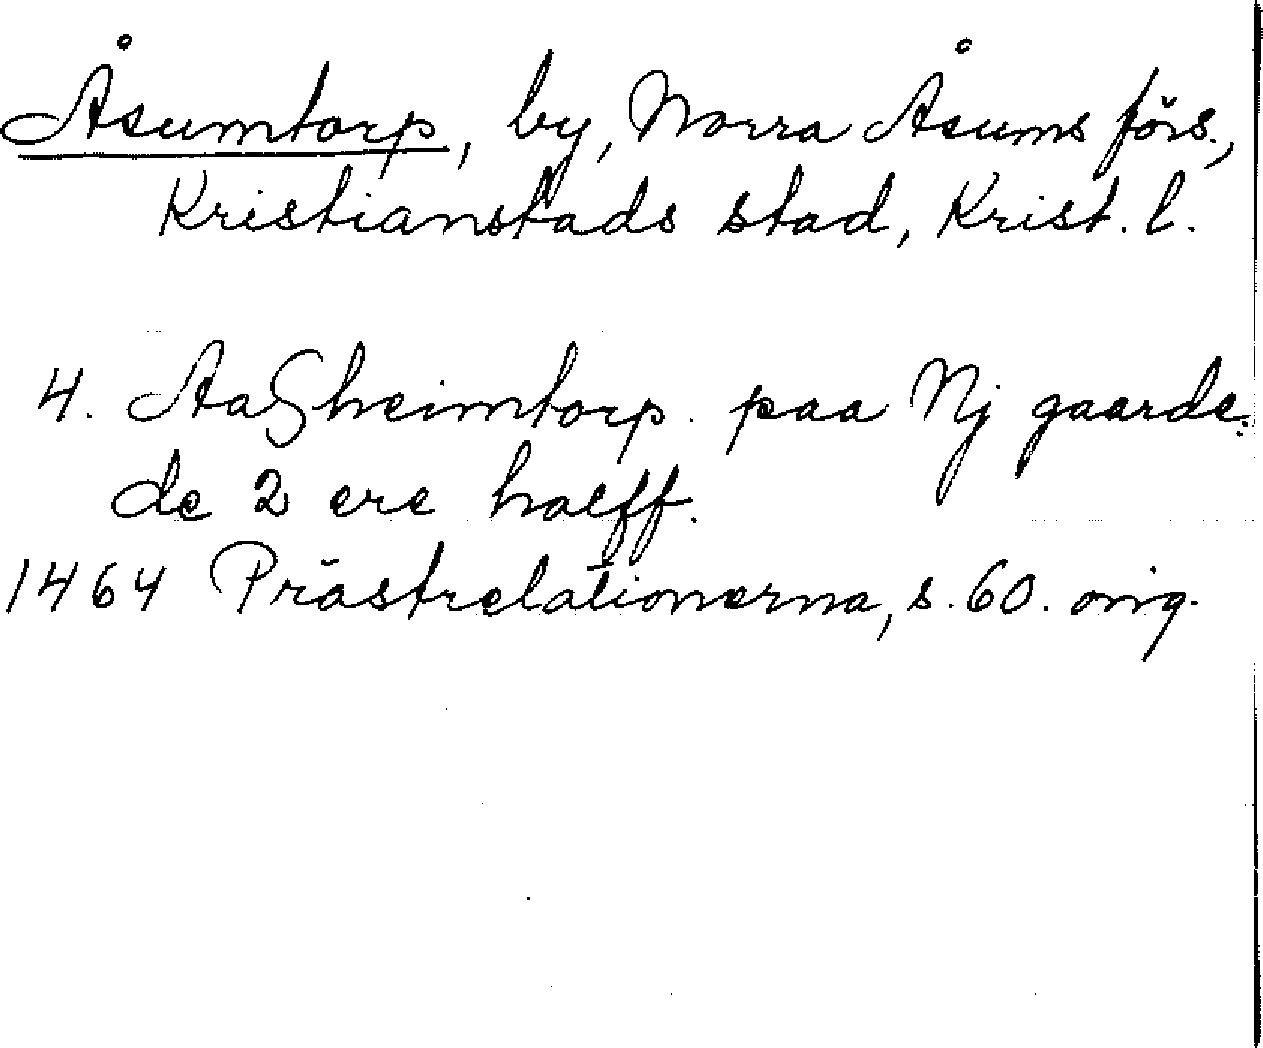 Åsumtorp, by, Norra Åsums förs.,
Kristianstads stad, Krist. l.
4. AaSheimtorp. paa Nj gaarde:
de 2 ere halff.
1464 Prästrelationerna, s. 60. orig.